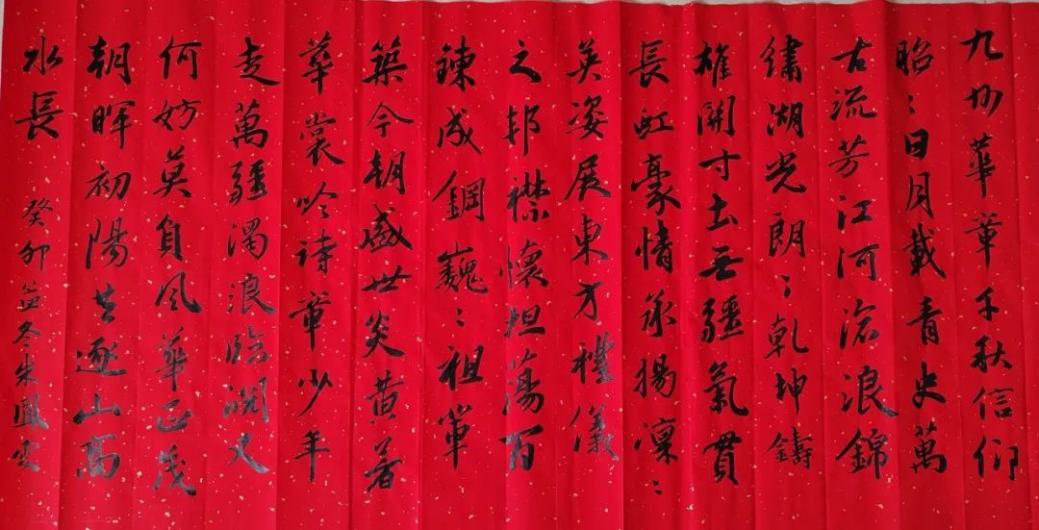 九州華章千秋信仰
昭〻日月載青史萬
古流芳江河滄浪錦
繡湖光朗〻乾坤鑄
雄關寸土無疆氣貫
長虹豪情承揚凜〻
英姿展東方禮儀
之邦襟懷坦蕩百
鍊成鋼巍〻祖輩
築今朝盛世炎黃著
華裳吟詩章少年
走萬疆濁浪臨淵又
何妨莫負風華正茂
朝暉初陽共逐山高
水長
癸卯孟冬朱鳳雲